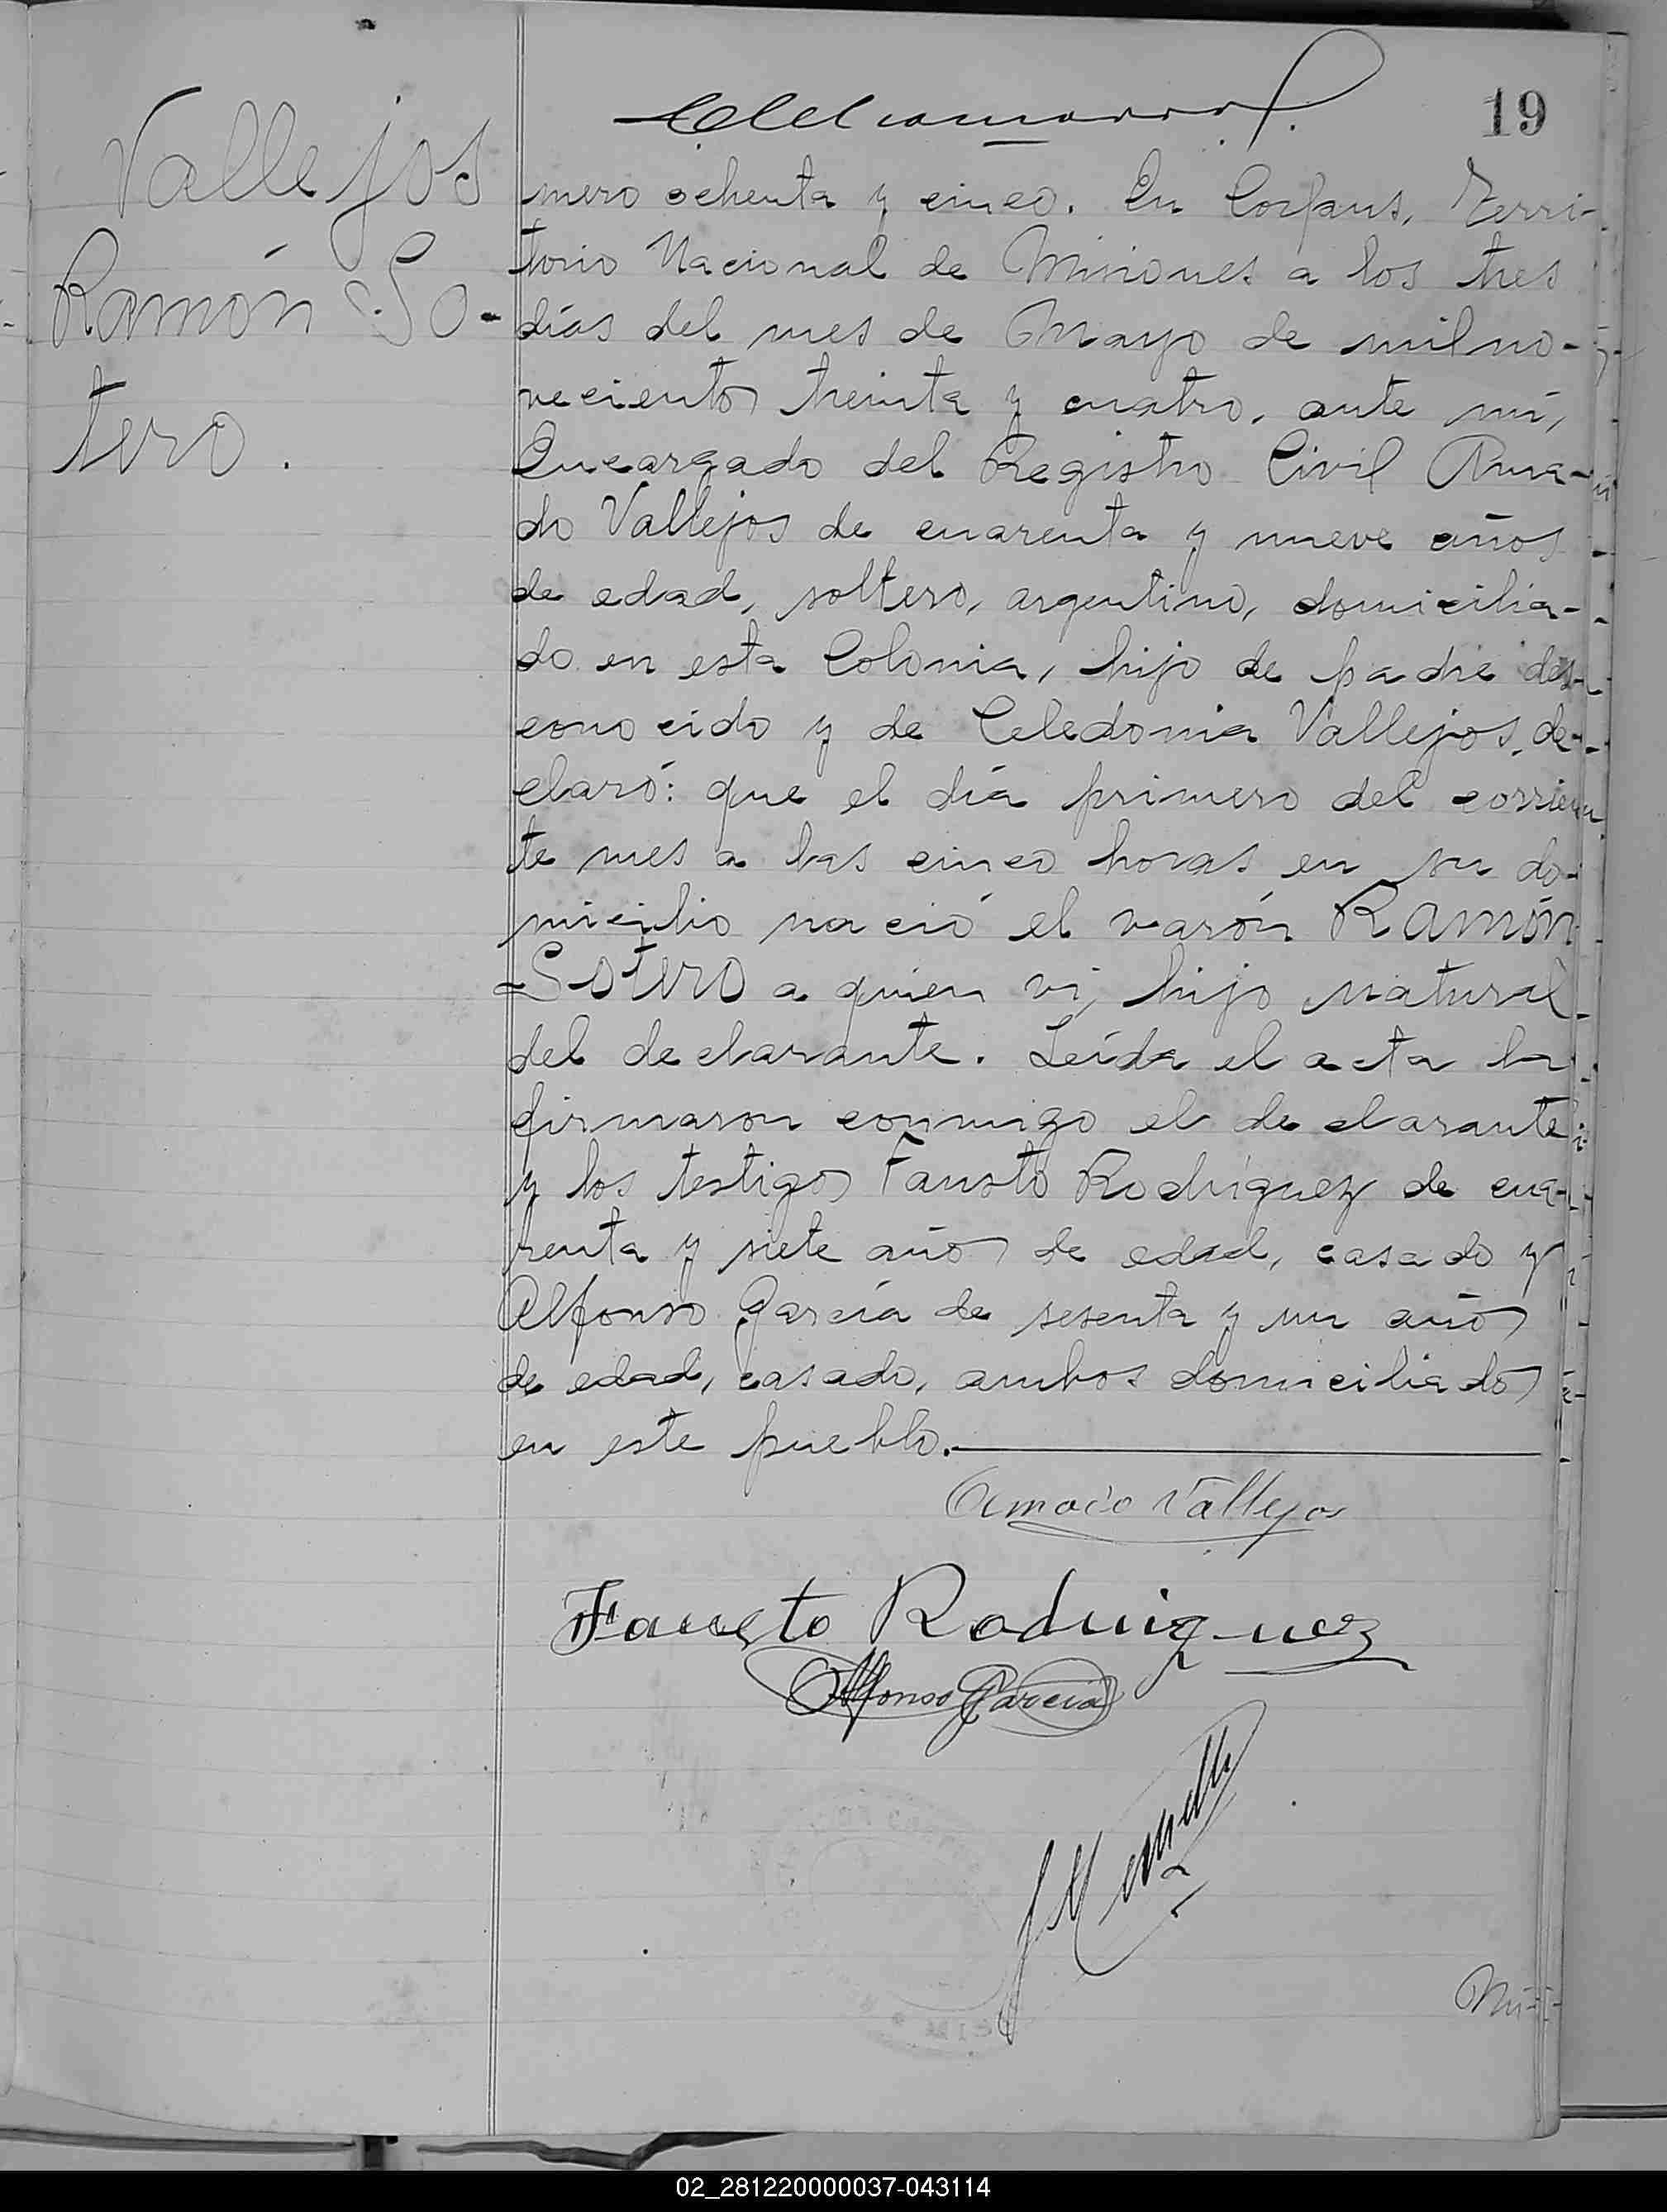 19
Vallejos
Ramón So-
tero.
mero ochenta y cinco. En Corpus, Terri-
torio Nacional de Misiones a los tres
días del mes de Mayo de mil no-
vecientos treinta y cuatro, ante mí,
Encargado del Registro Civil Ama-
do Vallejos de cuarenta y nueve años
de edad, soltero, argentino, domicilia-
do en esta Colonia, hijo de padre des-
conocido y de Celedonia Vallejos, de-
claró: que el día primero del corrien-
te mes a las cinco horas en su do-
micilio nació el varón Ramón
Sotero a quien vi, hijo natural
del declarante. Leída el acta la
firmaron conmigo el declarante
y los testigos Fausto Rodríguez de cua-
renta y siete años de edad, casado y
Alfonso García de sesenta y un años
de edad, casado, ambos domiciliados
en este pueblo.
Amado Vallejos
Fausto Rodriguez
Alfonso García
Nú-
02_281220000037-043114